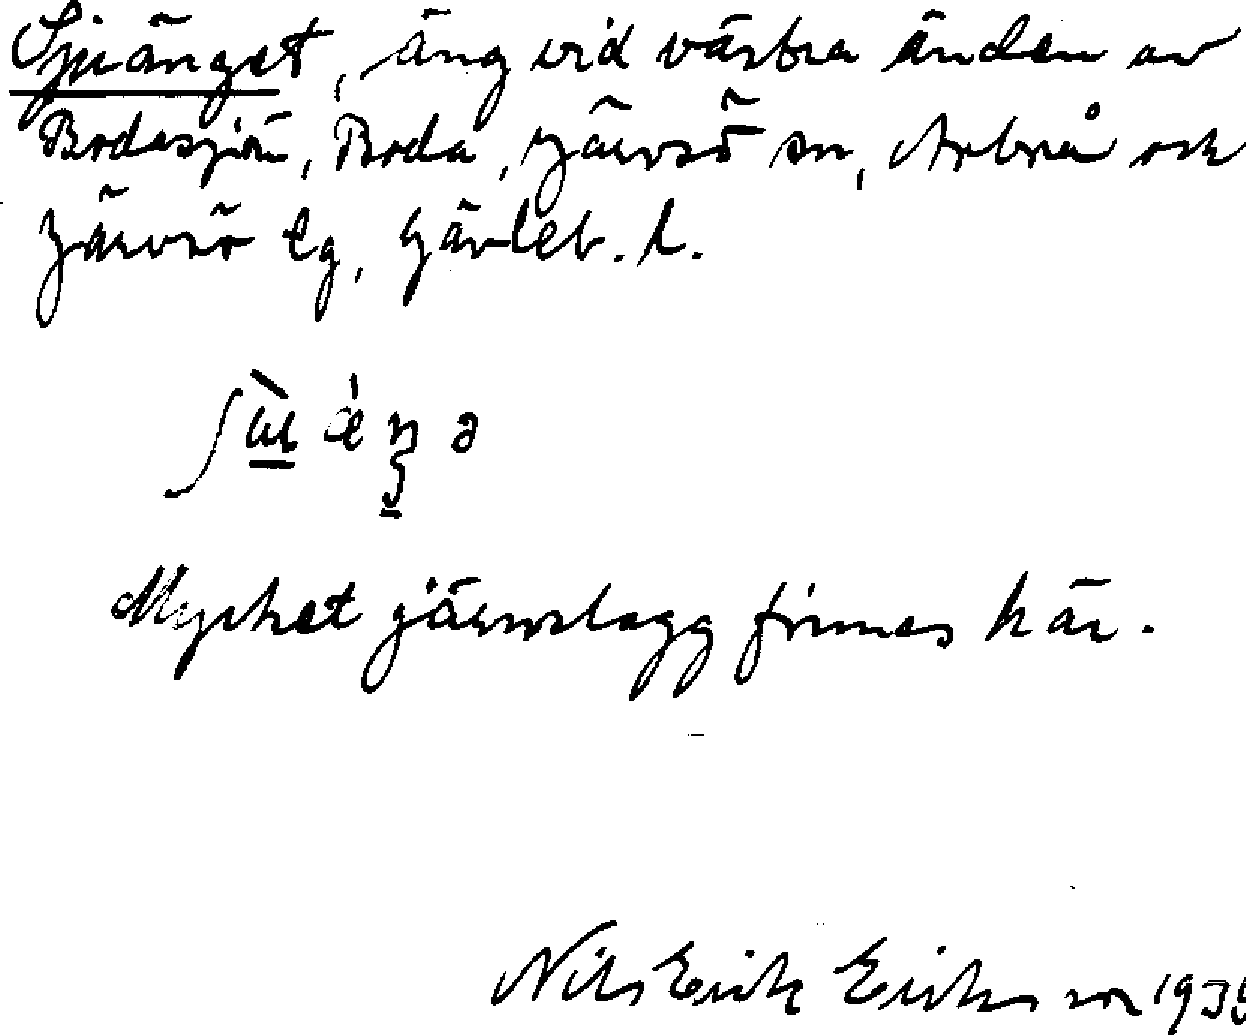 Sjuänget, äng vid västra änden av
Bodasjön, Boda, Järvsö sn, Arbrå och
Järvsö tg, Gävleb. l.
Mycket järnslagg finnes här.
Nils Erik Eriksson